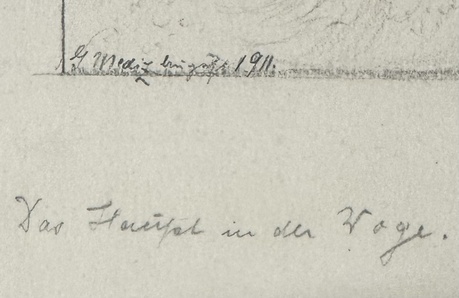 G Mediz 1911.
Das Haupt in der Woge.